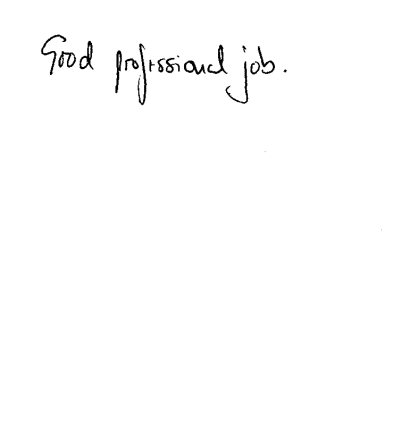 Good professional job.